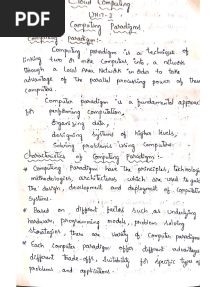 PDF
Cloud Computing
UNIT-I
Computing Paradigms
Computing paradigms:-
Computing paradigm is a technique of
linking two or more computers into a network
through a Local Area Network in order to take
advantage of the parallel processing power of these
computers.
Computer paradigm is a fundamental approach
for performing computation,
Organizing data,
designing systems of higher levels,
Solving problems using computers.
Characteristics of Computing Paradigms:-
* Computing Paradigms have the principles, technologies
methodologies, architectures which are used to guide
the design, development and deployment of computation
systems.
* Based on different factors such as underlying
hardware, programming models, problem solving
strategies, there are variety of computer paradigms
* Each computer paradigm offer different advantages
different trade-offs, suitability for specific types of
problems and applications.